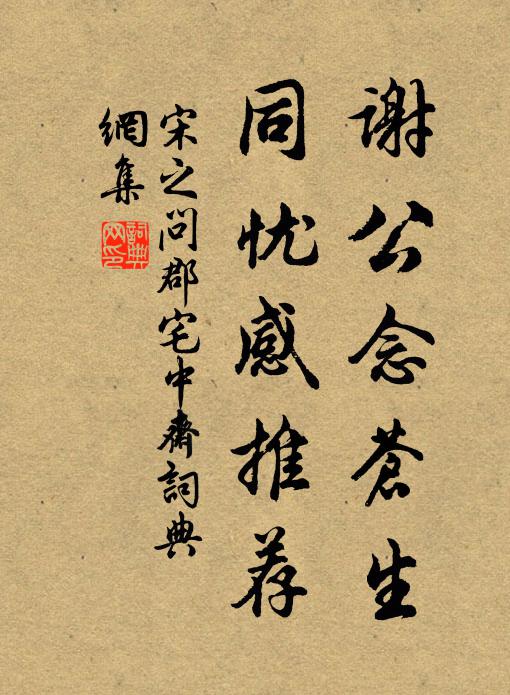 谢公念苍生
同忧感推荐
宋之问郡宅中斋词典
網集
詞典
网印